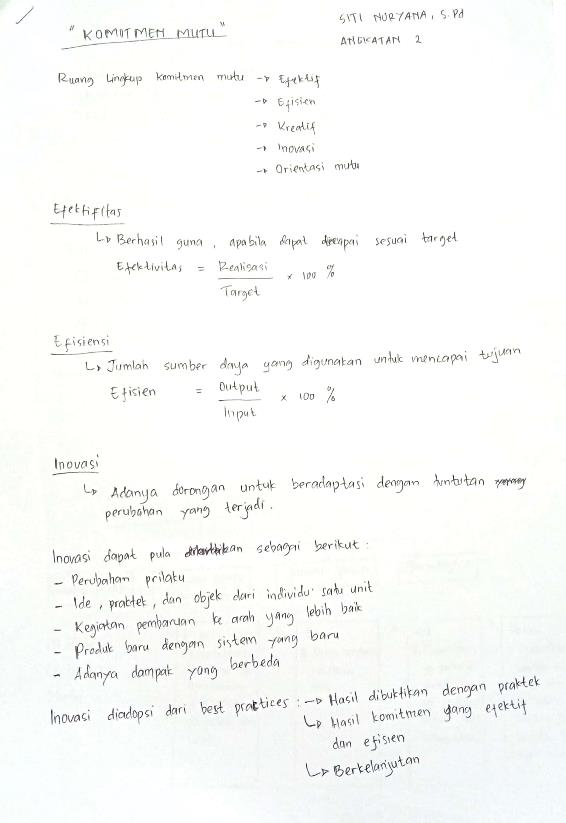 SITI NURYANA, S.Pd
"KOMITMEN MUTU"
ANGKATAN 2
Ruang Lingkup komitmen mutu → Efektif
→ Efisien
→ Kreatif
→ Inovasi
→ Orientasi mutu
Efektifitas
↳ Berhasil guna, apabila dapat dicapai sesuai target
Efektivitas = Realisasi / Target × 100 %
Efisiensi
↳ Jumlah sumber daya yang digunakan untuk mencapai tujuan
Efisien = Output / Input × 100 %
Inovasi
↳ Adanya dorongan untuk beradaptasi dengan tuntutan
perubahan yang terjadi.
Inovasi dapat pula diartikan sebagai berikut :
- Perubahan prilaku
- Ide, praktek, dan objek dari individu satu unit
- Kegiatan pembaruan ke arah yang lebih baik
- Produk baru dengan sistem yang baru
- Adanya dampak yang berbeda
Inovasi diadopsi dari best practices : → Hasil dibuktikan dengan praktek
↳ Hasil komitmen yang efektif
dan efisien
↳ Berkelanjutan